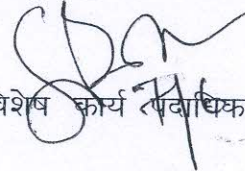 विशेष कार्य पदाधिका